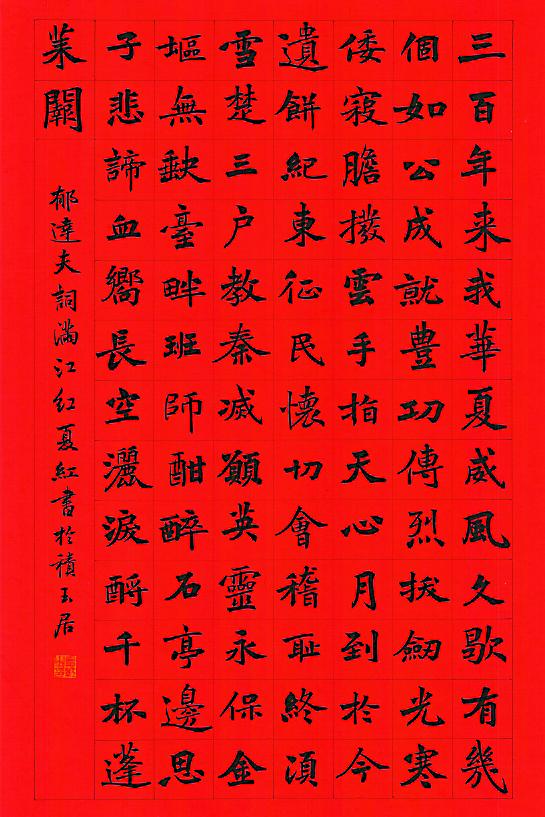 三百年来我華夏威風久歇有幾
個如公成就豊功傳烈拔劒光寒
倭寇膽撥雲手指天心月到於今
遺餅紀東征民懷切會稽耻終湏
雪楚三户教秦滅願英靈永保金
塸無缺臺畔班師酣醉石亭邊思
子悲諦血嚮長空灑淚酹千杯蓬
萊闕
郁達夫詞滿江红夏紅書於積玉居